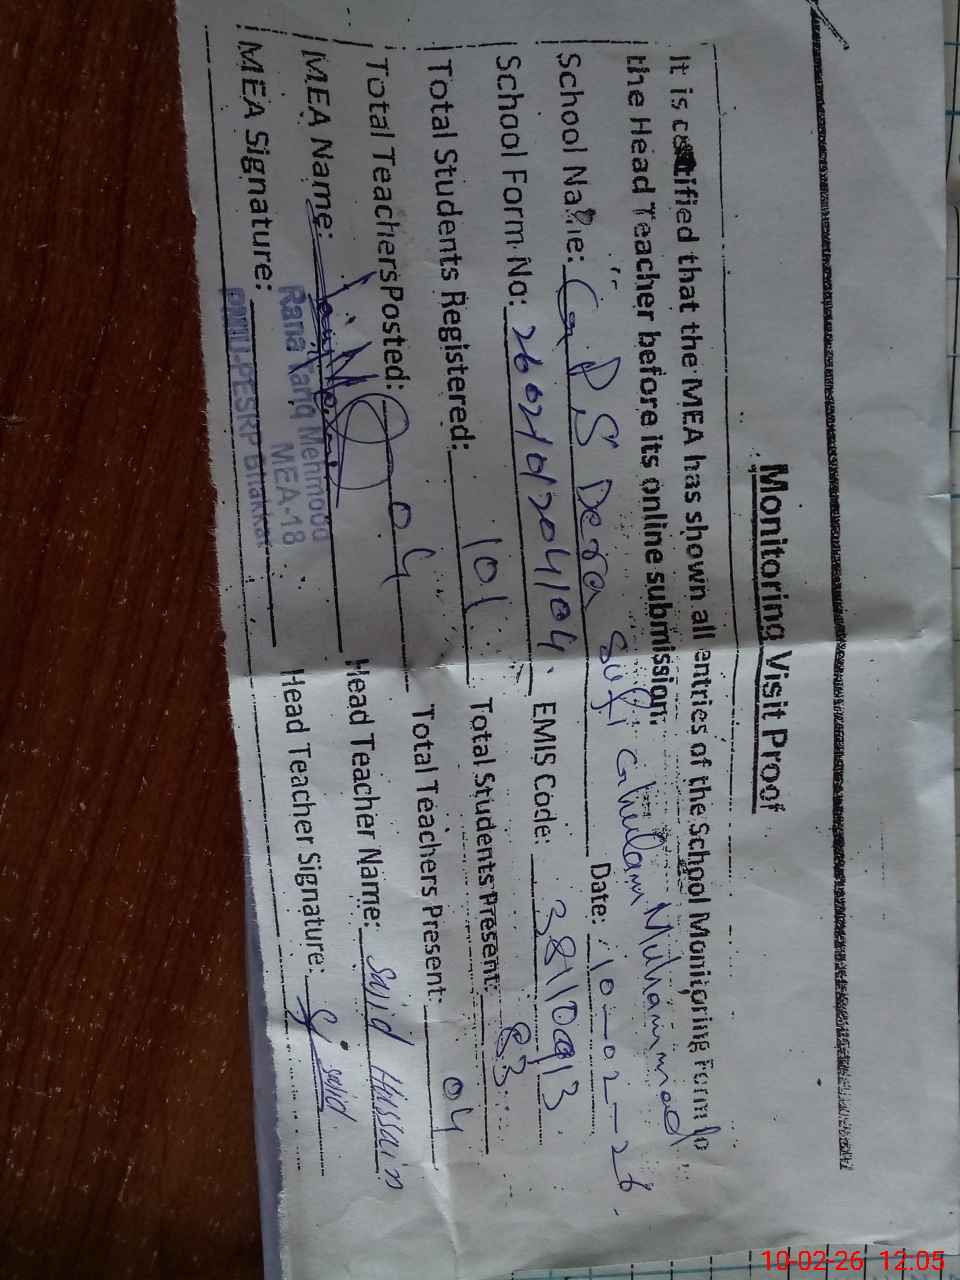 Monitoring Visit Proof
It is certified that the MEA has shown all entries of the School Monitoring Form to
the Head Teacher before its online submission.
School Name: G P S Dera Sufi Ghulam Muhammad Date: 10-02-26
School Form No: 2602101204104. EMIS Code:
Total Students Registered: 101 Total Students Present: 83
Total Teachers Posted: 04 Total Teachers Present: 04
MEA Name: Head Teacher Name: Sajid Hussain
Rana Tariq Mehmood
MEA-18
PMIU-PESRP Bhakkar
MEA Signature: Head Teacher Signature: Sajid
10-02-26 12:05